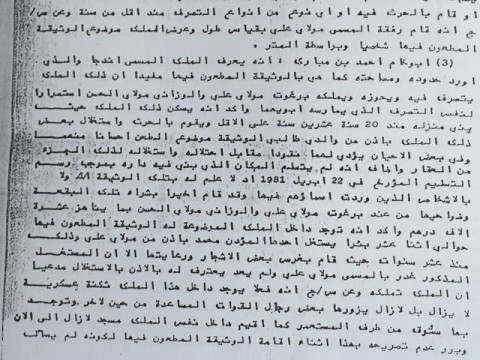 او قام بالحرث فيه او اي نوع من انواع التصرف منذ اقل من سنة وعن س/
ج انه قام رفقة المسمى مولاي علي بقياس طول وعرض الملك موضوع الوثيقة
المطعون فيها شخصيا وبواسطة المتر •
(3) احمد بن مبارك : انه يعرف الملك المسمى اندجا والذي
اورد حدوده ومساحته كما هي بالوثيقة المطعون فيها مفيدا ان ذلك الملك
يتصرف فيه ويحوزه ويملكه برغوت مولاي علي والوزاني مولاي الحسن استمرارا
لنفس التصرف الذي يمارسه ابويهما واكد انه يسكن ذلك الملك حيث
بنى منزله منذ 20 سنة عشرين سنة على الاقل ويقوم بالحرث واستغلال بعض
ذلك الملك باذن من والدي طالبي الوثيقة موضوع الطعن احسانا منهما
وفي بعض الاحيان يؤدي لهما نقودا مقابل احتلاله واستغلاله لذلك الجزء
من العقار واضاف انه لم يتسلم المكان الذي بنى فيه داره بموجب رسم
التسليم المؤرخ في 22 ابريل 1981 اد لا علم له بتلك الوثيقة ولا
بالاشخاص الذين وردت اسماؤهم فيها وقد قام اخيرا بشراء تلك البقعة
وضواحيها من عند برغوت مولاي علي والوزاني مولاي الحسن بما يناهز عشرة
الاف درهم واكد انه توجد داخل الملك الموضوعة له الوثيقة المطعون فيها
حوالي اثنا عشر بئرا يستغل احدها المؤذن محمد باذن من مولاي علي وذلك
منذ عشر سنوات حيث قام بغرس بعض الاشجار ورعايتها الا ان المستغل
المذكور غدر بالمسمى مولاي علي ولم يعد يعترف له بالاذن بالاستغلال مدعيا
ان الملك تملكه وعن س/ج انه فعلا يوجد داخل هذا الملك ثكنة عسكرية
لا يزال بل لازال يزورها بعض رجال القوات المساعدة من حين لاخر وتوجد
بها من طرف المستعمر كما اقيم داخل نفس الملك مسجد لازال الى الان
وبرر عدم تصريحه بهذا اثناء اقامة الوثيقة المطعون فيها لكونه لم يسأل